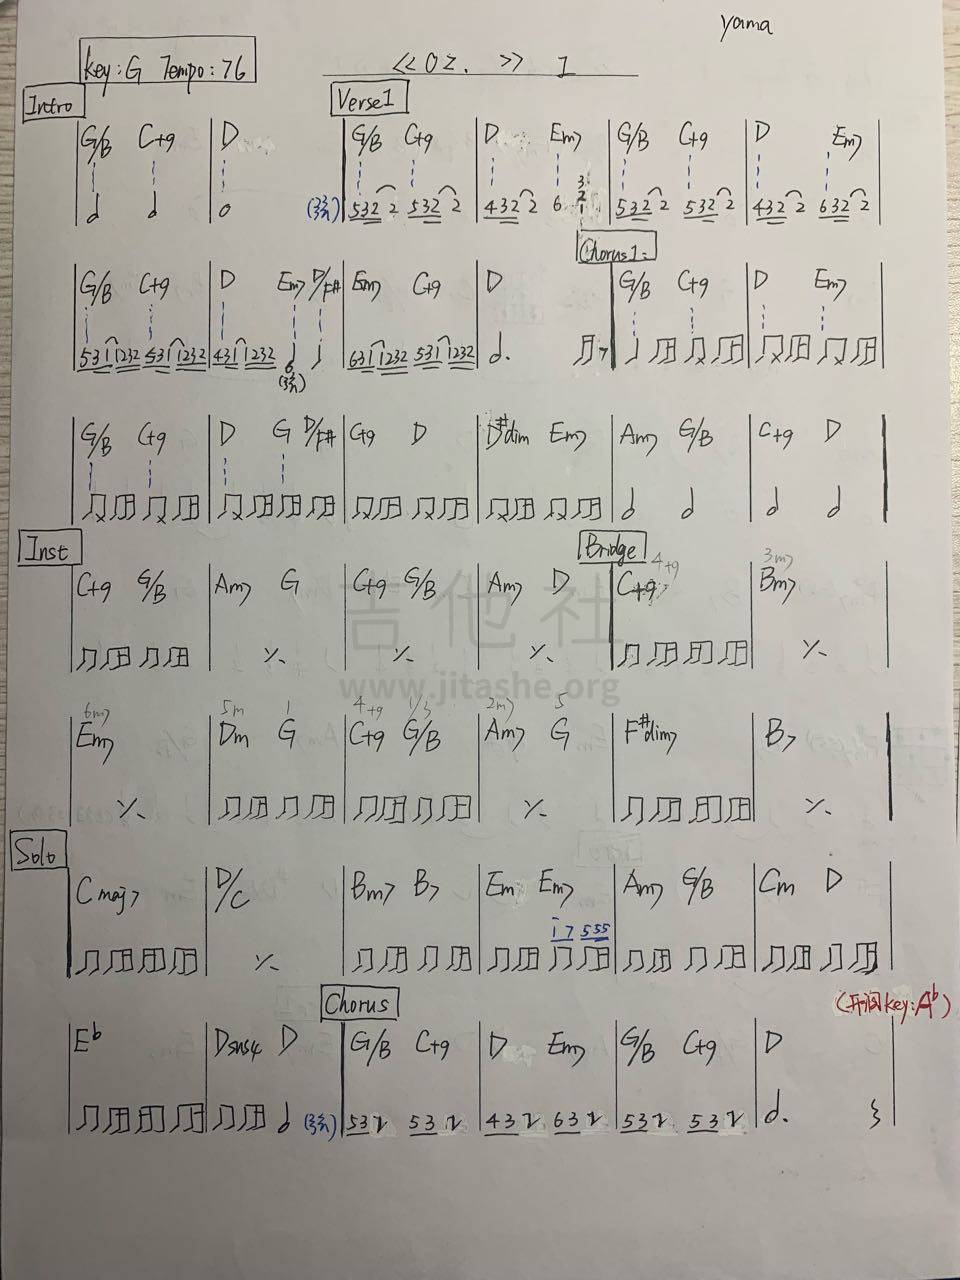 yama
Key:G Tempo:76
<<OZ.>> 1
Intro Verse1
G/B C+9 D G/B C+9 D Em7 G/B C+9 D Em7
532 2 532 2 432 2 6 3 2 1 532 2 532 2 432 2 632 2
Chorus1:
G/B C+9 D Em7 D/F# Em7 C+9 D G/B C+9 D Em7
531 1232 531 1232 431 1232 6 631 1232 531 1232
G/B C+9 D G D/F# C+9 D D#dim Em7 Am7 G/B C+9 D
Inst Bridge
4+9 3m7
C+9 G/B Am7 G C+9 G/B Am7 D C+9 Bm7
吉他社
www.jitashe.org
6m7 5m 1 4+9 1/3 2m7 5
Em7 Dm G C+9 G/B Am7 G F#dim7 B7
Solo
Cmaj7 D/C Bm7 B7 Em Em7 Am7 G/B Cm D
i7 555
Chorus
(开润key:Ab)
Eb Dsus4 D G/B C+9 D Em7 G/B C+9 D
532 532 432 632 532 532